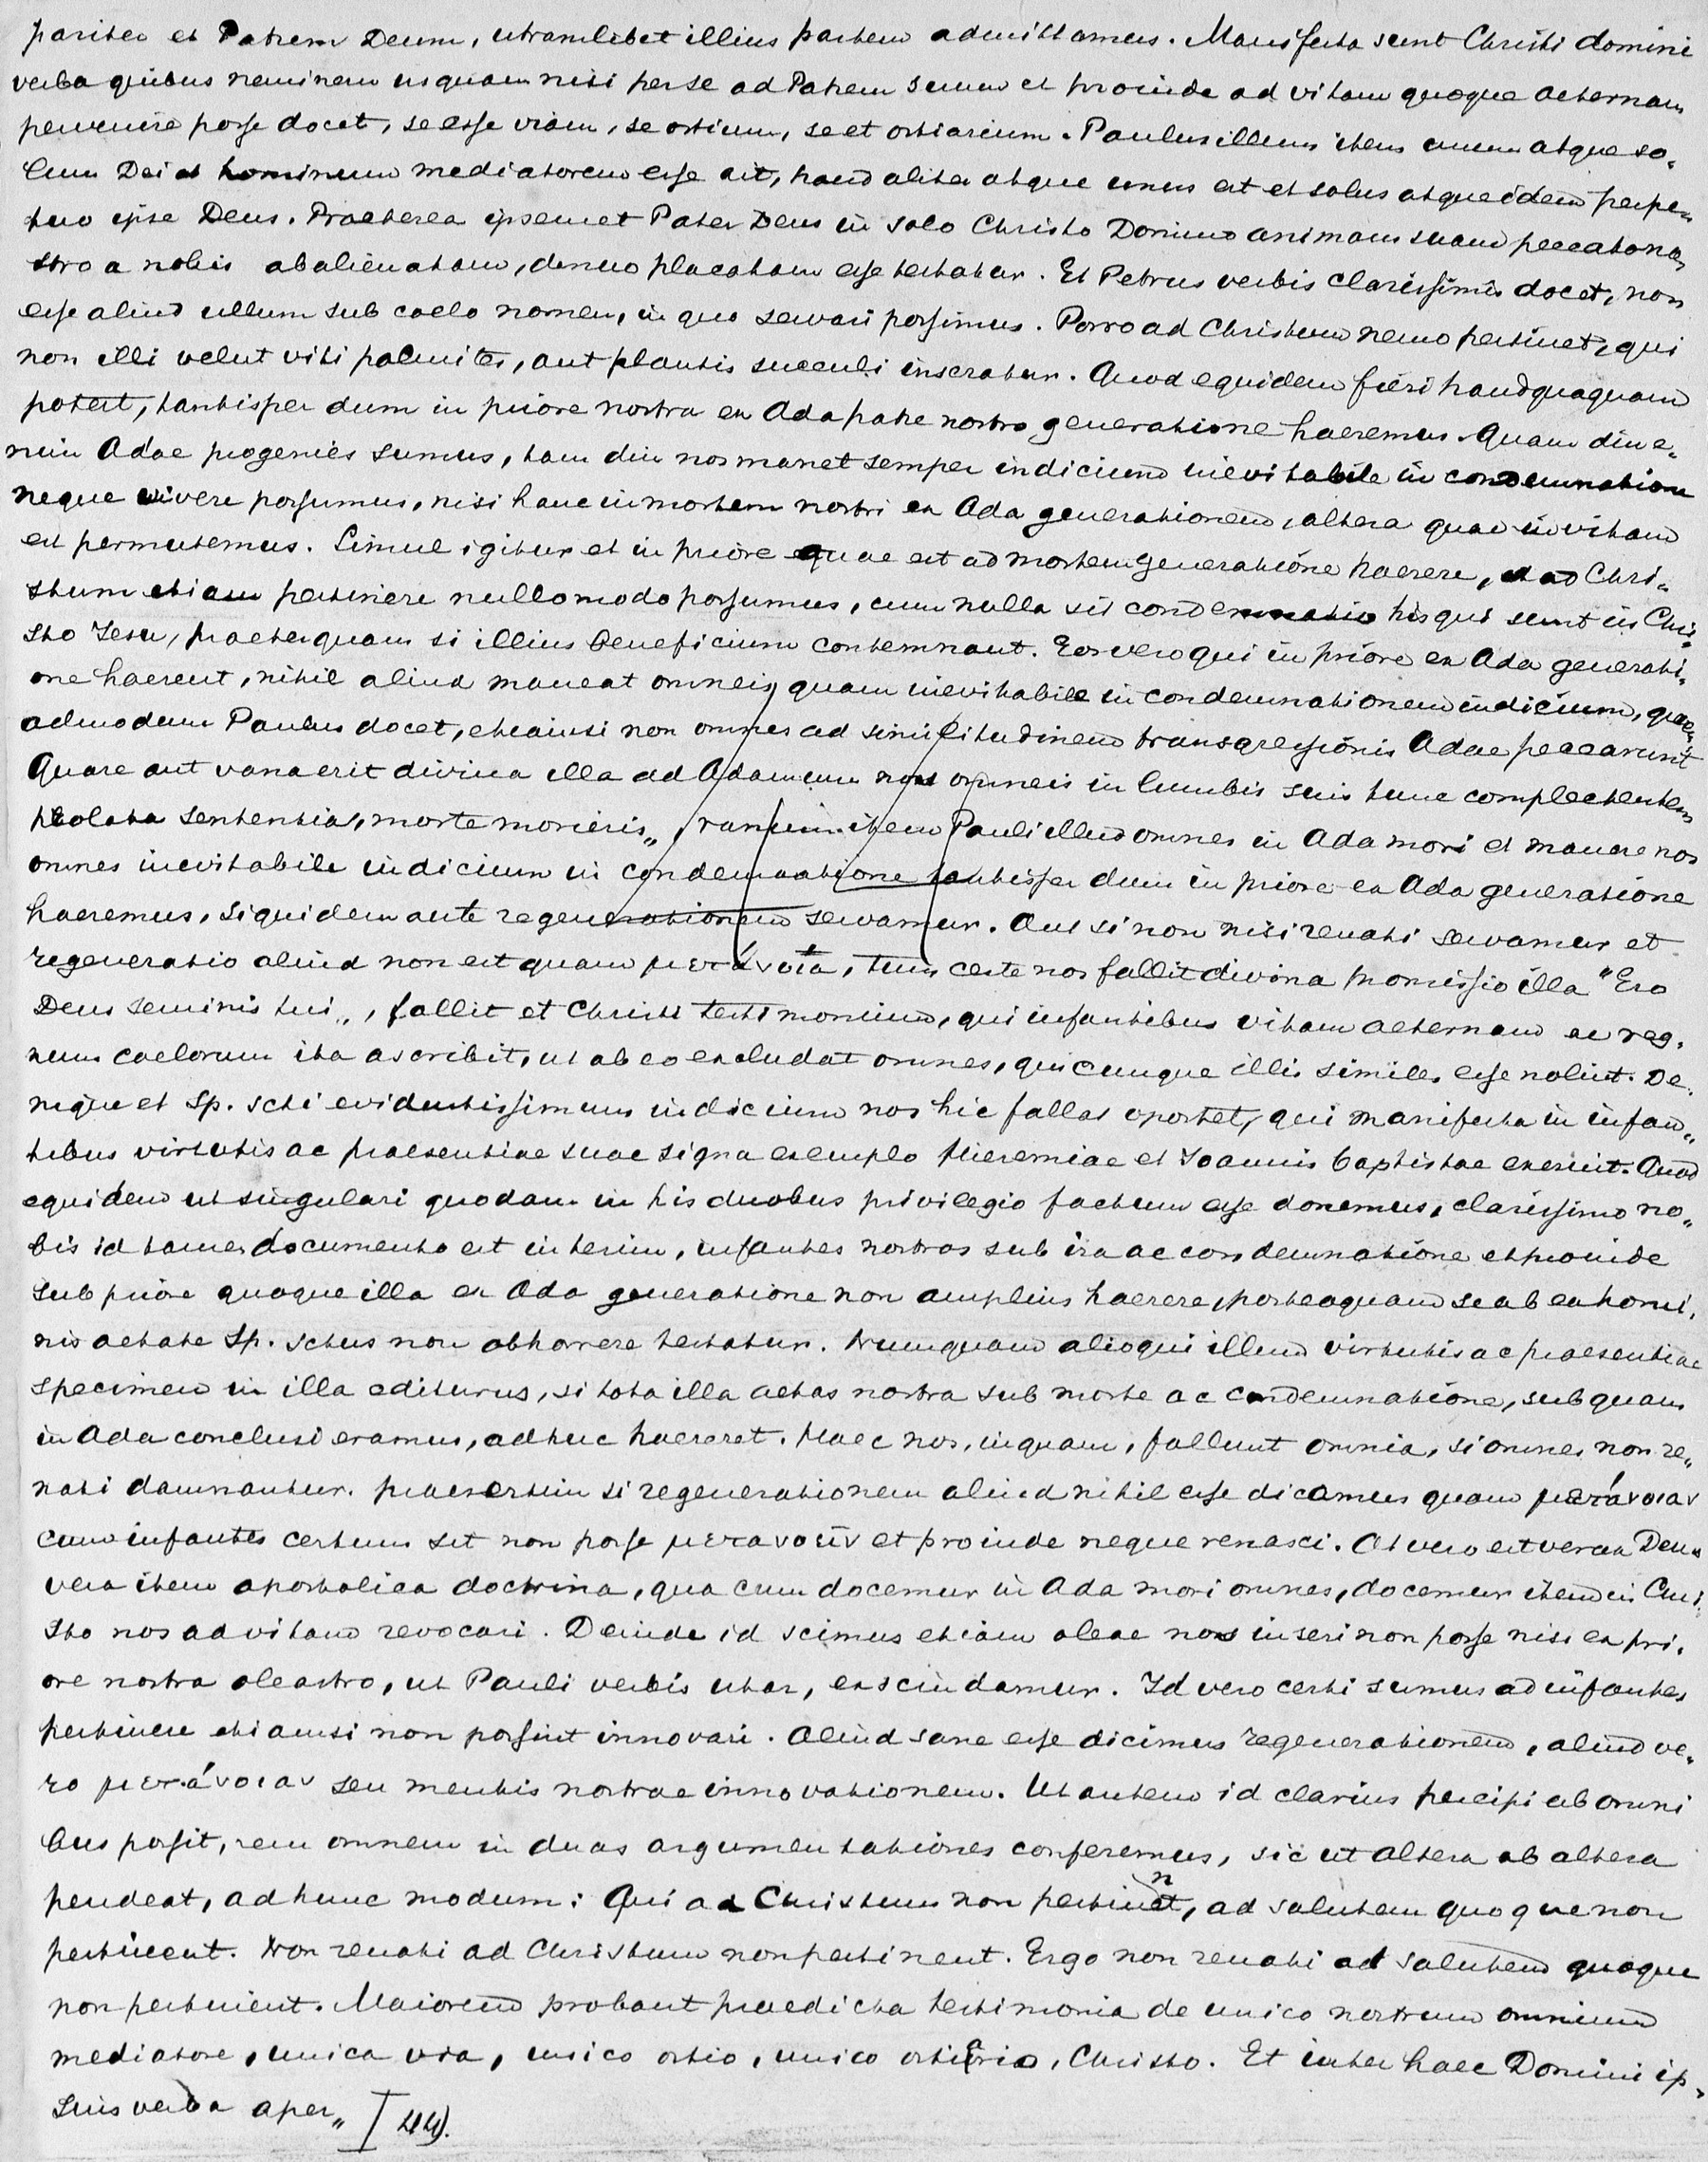 pariter et Patrem Deum, utramlibet illius partem admittamus. Manifesta sunt Christi domini
verba quibus neminem usquam nisi per se ad Patrem suum et proinde ad vitam quoque aeternam
pervenire posse docet, se esse viam, se ostium, se et ostiarium. Paulus illum item unum atque so„
lum Dei et hominum mediatorem esse ait, haud aliter atque unus est et solus atque idem perpe„
tuo ipse Deus. Praeterea ipsemet Pater Deus in solo Christo Domino animam suam peccato no„
stro a nobis abalienatam, denuo placatam esse testatur. Et Petrus verbis clarissimis docet, non
esse aliud ullum sub coelo nomen, in quo servari possimus. Porro ad Christum nemo pertinet, qui
non illi velut viti palmites, aut plantis surculi inseratur. Quod equidem fieri haudquaquam
potest, tantisper dum in priore nostra ex Ada patre nostro generatione haeremus. Quam diu e„
nim Adae progenies sumus, tam diu nos manet semper iudicium inevitabile in condemnatione
neque vivere possumus, nisi hanc in mortem nostri ex Ada generationem, altera quae in vitam
est permutemus. Simul igitur et in priore quae est ad mortem generatione haerere, et ad Chri„
stum etiam pertinere nullo modo possumus, cum nulla sit condemnatio his qui sunt in Chri„
sto Jesu, praeterquam si illius beneficium contemnant. Eos vero qui in priore ex Ada generati„
one haerent, nihil aliud maneat omneis, quam inevitabile in condemnationem iudicium, quem„
admodum Paulus docet, etiamsi non omnes ad similitudinem transgressionis Adae peccarunt
Quare aut vana erit divina illa ad Adamum nos omneis in lumbis suis tunc complectentem
prolata sententia, morte morieris„, vanum item Pauli illud omnes in Ada mori et manere nos
omnes inevitabile iudicium in condemnatione tantisper dum in priore ex Ada generatione
haeremus, siquidem ante regenerationem servamur. Aut si non nisi renati servamur et
regeneratio aliud non est quam μετάνοια, tum certe nos fallit divina promissio illa "Ero
Deus seminis tui„, fallit et Christi testimonium, qui infantibus vitam aeternam ac reg„
num caelorum ita ascribit, ut ab eo excludat omnes, quicunque illis similes esse nolint. De„
nique et Sp. scti evidentissimum iudicium nos hic fallat oportet, qui manifesta in infan„
tibus virtutis ac praesentiae suae signa exemplo Hieremiae et Joannis baptistae exeruit. Quod
equidem ut singulari quodam in his duobus privilegio factum esse donemus, clarissimo no„
bis id tamen documento est interim, infantes nostros sub ira ac condemnatione et proinde
sub priore quoque illa ex Ada generatione non amplius haerere, posteaquam se ab ea homi„
nis aetate Sp. sctus non abhorrere testatur. Nunquam alioqui illud virtutis ac praesentiae
specimen in illa editurus, si tota illa aetas nostra sub morte ac condemnatione, sub quam
in Ada conclusi eramus, adhuc haereret. Haec nos, inquam, fallunt omnia, si omnes non re„
nati damnantur. praesertim si regenerationem aliud nihil esse dicamus quam μετάνοιαν
cum infantes certum sit non posse μετανοεῖν et proinde neque renasci. At vero est verax Deus
vera item apostolica doctrina, qua cum docemur in Ada mori omnes, docemur item in Chri„
sto nos ad vitam revocari. Deinde id scimus etiam oleae nos inseri non posse nisi ex pri„
ore nostra oleastro, ut Pauli verbis utar, exscindamur. Id vero certi sumus ad infantes
pertinere etiamsi non possint innovari. Aliud sane esse dicimus regenerationem, aliud ve„
ro μετάνοιαν seu mentis nostrae innovationem. Ut autem id clarius percipi ab omni
bus possit, rem omnem in duas argumentationes conferemus, sic ut altera ab altera
pendeat, ad hunc modum: Qui ad Christum non pertinent, ad salutem quoque non
pertinent. Non renati ad Christum non pertinent. Ergo non renati ad salutem quoque
non pertinent. Maiorem probant praedicta testimonia de unico nostrum omnium
mediatore, unica via, unico ostio, unico ostiario, Christo. Et inter haec Domini ip„
sius verba aper„ I 44).